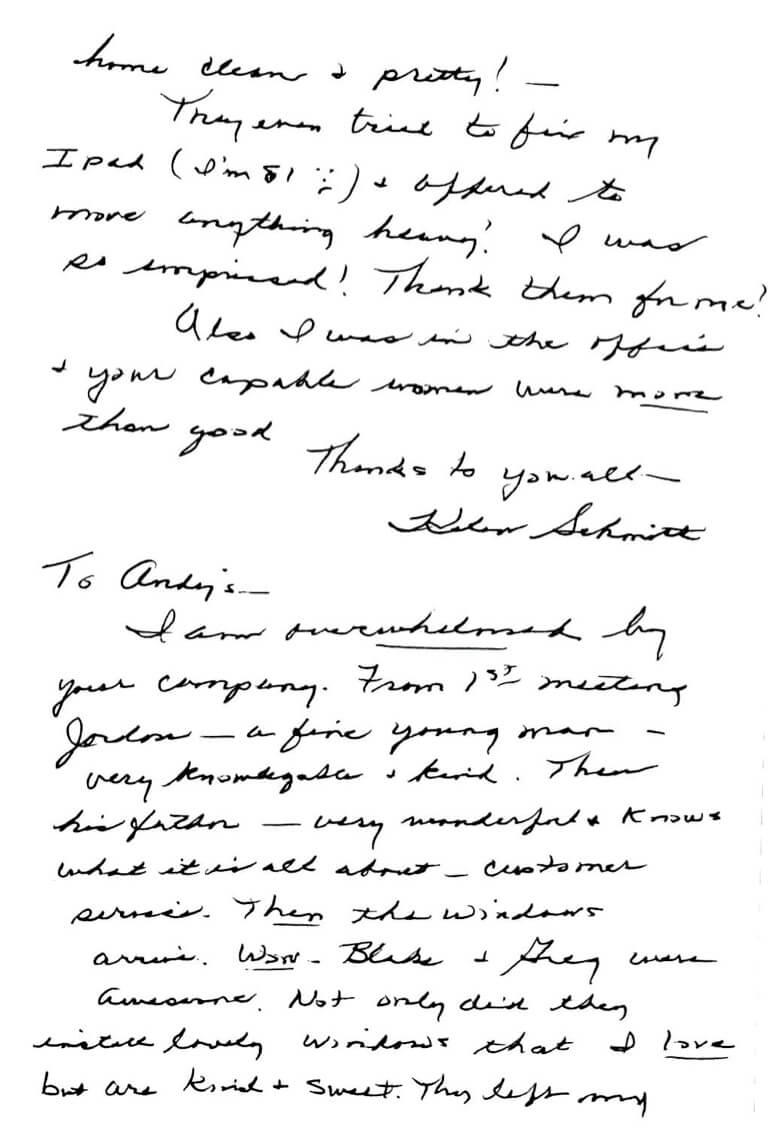 home clean & pretty! —
They even tried to fix my
Ipad (I'm 81 :) & offered to
move anything heavy! I was
so impressed! Thank them for me!
Also I was in the office
& your capable women were more
than good
Thanks to you all —
Helen Schmitt
To Andy's —
I am overwhelmed by
your company. From 1st meeting
Jordon — a fine young man —
very knowlegable & kind. Then
his father — very wonderful & knows
what it is all about — customer
service. Then the windows
arrive. Wow — Blake & Greg were
awesome. Not only did they
install lovely windows that I love
but are kind & sweet. They left my